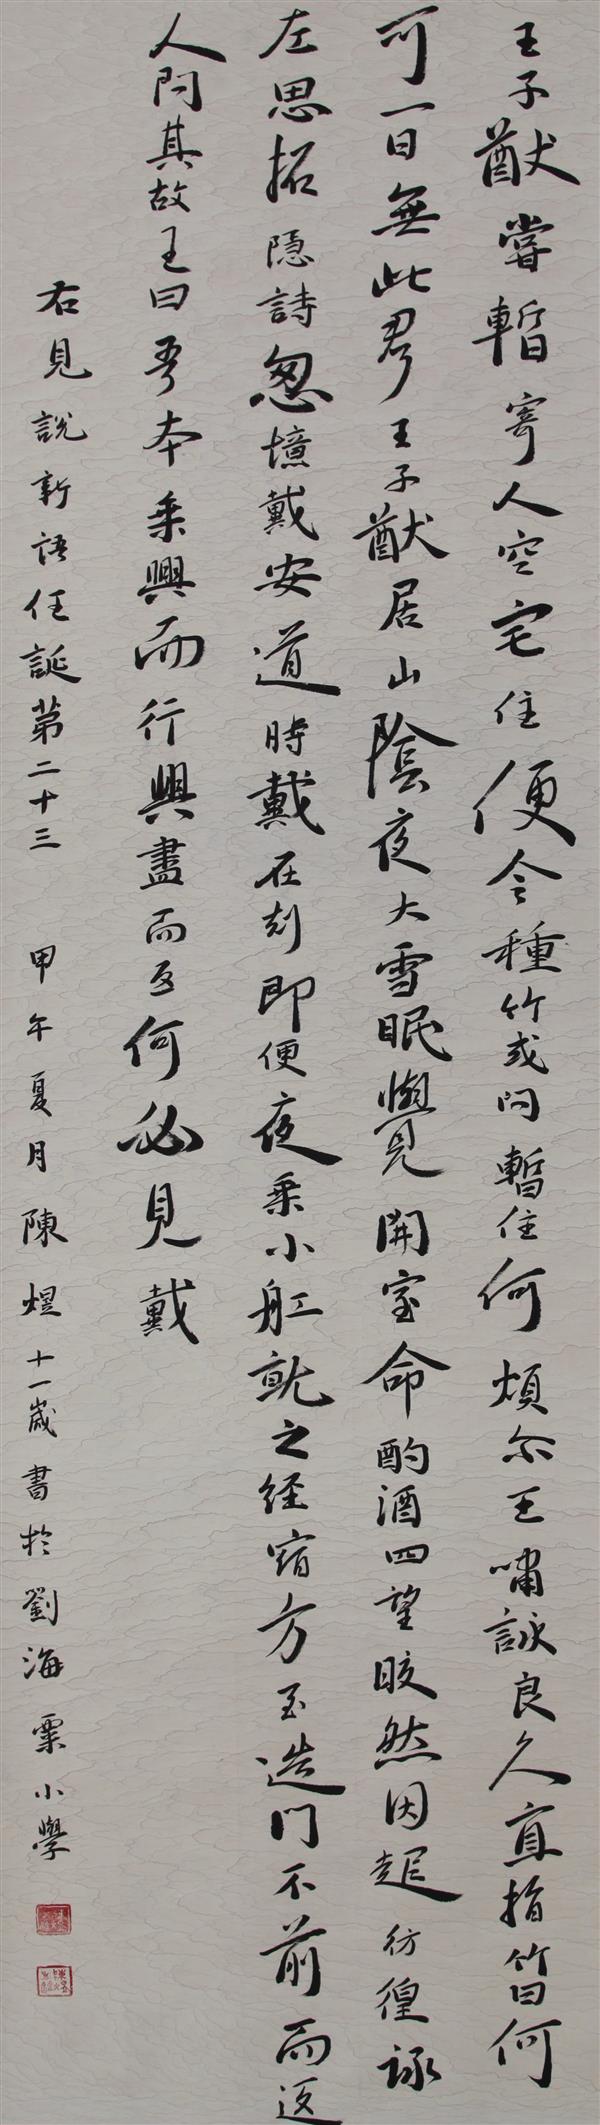 王子猷嘗暫寄人空宅住便令種竹或問暫住何煩尔王嘯詠良久直指竹曰何
可一日無此君王子猷居山陰夜大雪眠覺開室命酌酒四望皎然因起彷徨詠
左思招隱詩忽憶戴安道時戴在剡即便夜乘小舡就之經宿方至造門不前而返
人問其故王曰吾本乘興而行興盡而返何必見戴
右見說新語任誕第二十三 甲午夏月陳煜十一歲書於劉海粟小學